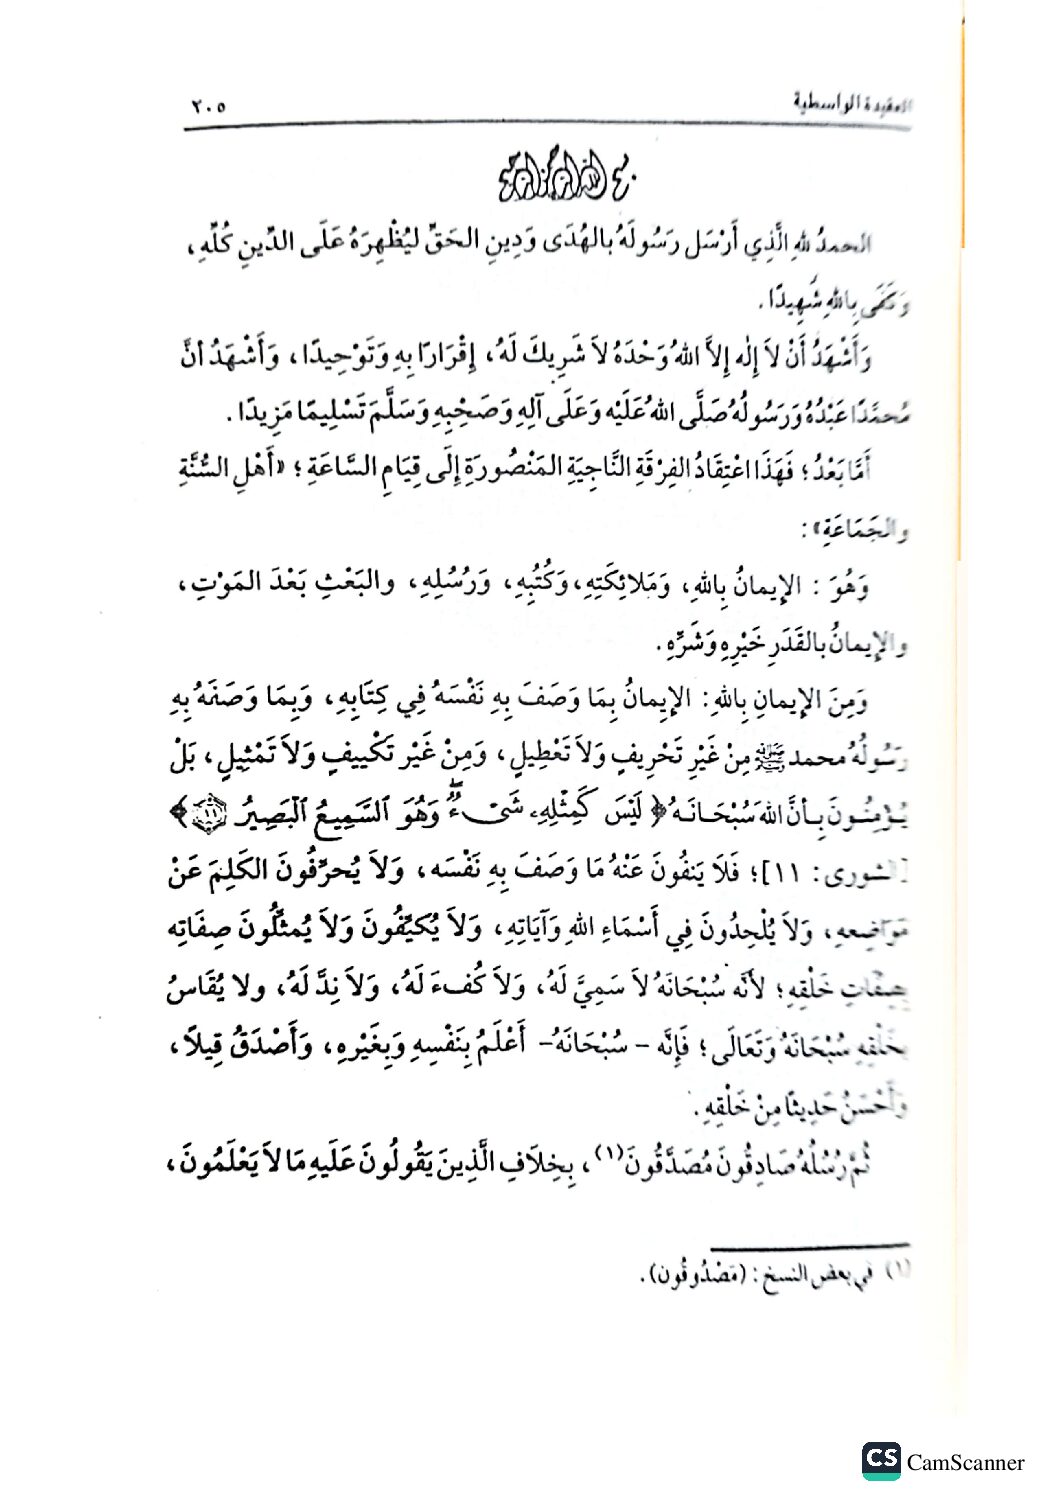 العقيدة الواسطية ٢٠٥
بسم الله الرحمن الرحيم
الحمدُ للهِ الَّذِي أَرْسَل رَسُولَهُ بالهُدَى وَدِينِ الحَقِّ ليُظْهِرَهُ عَلَى الدِّينِ كُلِّهِ،
وَكَفَى بِاللهِ شَهِيدًا.
وَأَشْهَدُ أَنْ لاَ إِلٰه إِلاَّ اللهُ وَحْدَهُ لاَ شَرِيكَ لَهُ، إِقْرَارًا بِهِ وَتَوْحِيدًا، وَأَشْهَدُ أنَّ
مُحمَّدًا عَبْدُهُ وَرَسُولُهُ صَلَّى اللهُ عَلَيْه وَعَلَى آلِهِ وَصَحْبِهِ وَسَلَّمَ تَسْلِيمًا مَزِيدًا.
أَمَّا بَعْدُ؛ فَهَذَا اعْتِقَادُ الفِرْقَةِ النَّاجِيَةِ المَنْصُورَةِ إِلَى قِيَامِ السَّاعَةِ؛ «أَهْلِ السُّنَّةِ
والجَمَاعَةِ»:
وَهُوَ: الإِيمانُ بِاللهِ، وَمَلائِكَتِهِ، وَكُتُبِهِ، وَرُسُلِهِ، والبَعْثِ بَعْدَ المَوْتِ،
والإِيمانُ بالقَدَرِ خَيْرِهِ وَشَرِّهِ.
وَمِنَ الإِيمانِ بِاللهِ: الإِيمانُ بِمَا وَصَفَ بِهِ نَفْسَهُ فِي كِتَابِهِ، وَبِمَا وَصَفَهُ بِهِ
رَسُولُهُ محمد ﷺ مِنْ غَيْرِ تَحْرِيفٍ وَلاَ تَعْطِيلٍ، وَمِنْ غَيْرِ تَكْييفٍ وَلاَ تَمْثِيلٍ، بَلْ
يُؤْمِنُونَ بِأنَّ اللهَ سُبْحَانَهُ ﴿لَيْسَ كَمِثْلِهِۦ شَىْءٌ ۖ وَهُوَ ٱلسَّمِيعُ ٱلْبَصِيرُ ١١﴾
[الشورى: ١١]؛ فَلاَ يَنفُونَ عَنْهُ مَا وَصَفَ بِهِ نَفْسَه، وَلاَ يُحرِّفُونَ الكَلِمَ عَنْ
مَوَاضِعهِ، وَلاَ يُلْحِدُونَ فِي أَسْمَاءِ اللهِ وَآيَاتِهِ، وَلاَ يُكيِّفُونَ وَلاَ يُمثِّلُونَ صِفَاتِه
بِصِفَاتِ خَلْقِهِ؛ لأَنَّه سُبْحَانَهُ لاَ سَمِيَّ لَهُ، وَلاَ كُفءَ لَهُ، وَلاَ نِدَّ لَهُ، ولا يُقَاسُ
بِخَلْقِهِ سُبْحَانَهُ وَتَعَالَى؛ فَإِنَّه - سُبْحَانَهُ - أَعْلَمُ بِنَفْسِهِ وَبِغَيْرِهِ، وَأَصْدَقُ قِيلاً،
وَأَحْسَنُ حَدِيثًا مِنْ خَلْقِهِ.
ثُمَّ رُسُلُهُ صَادِقُونَ مُصَدَّقُونَ(١)، بِخِلاَفِ الَّذِينَ يَقُولُونَ عَلَيهِ مَا لاَ يَعْلَمُونَ،
(١) في بعض النسخ: (مَصْدُوقُون).
CS CamScanner